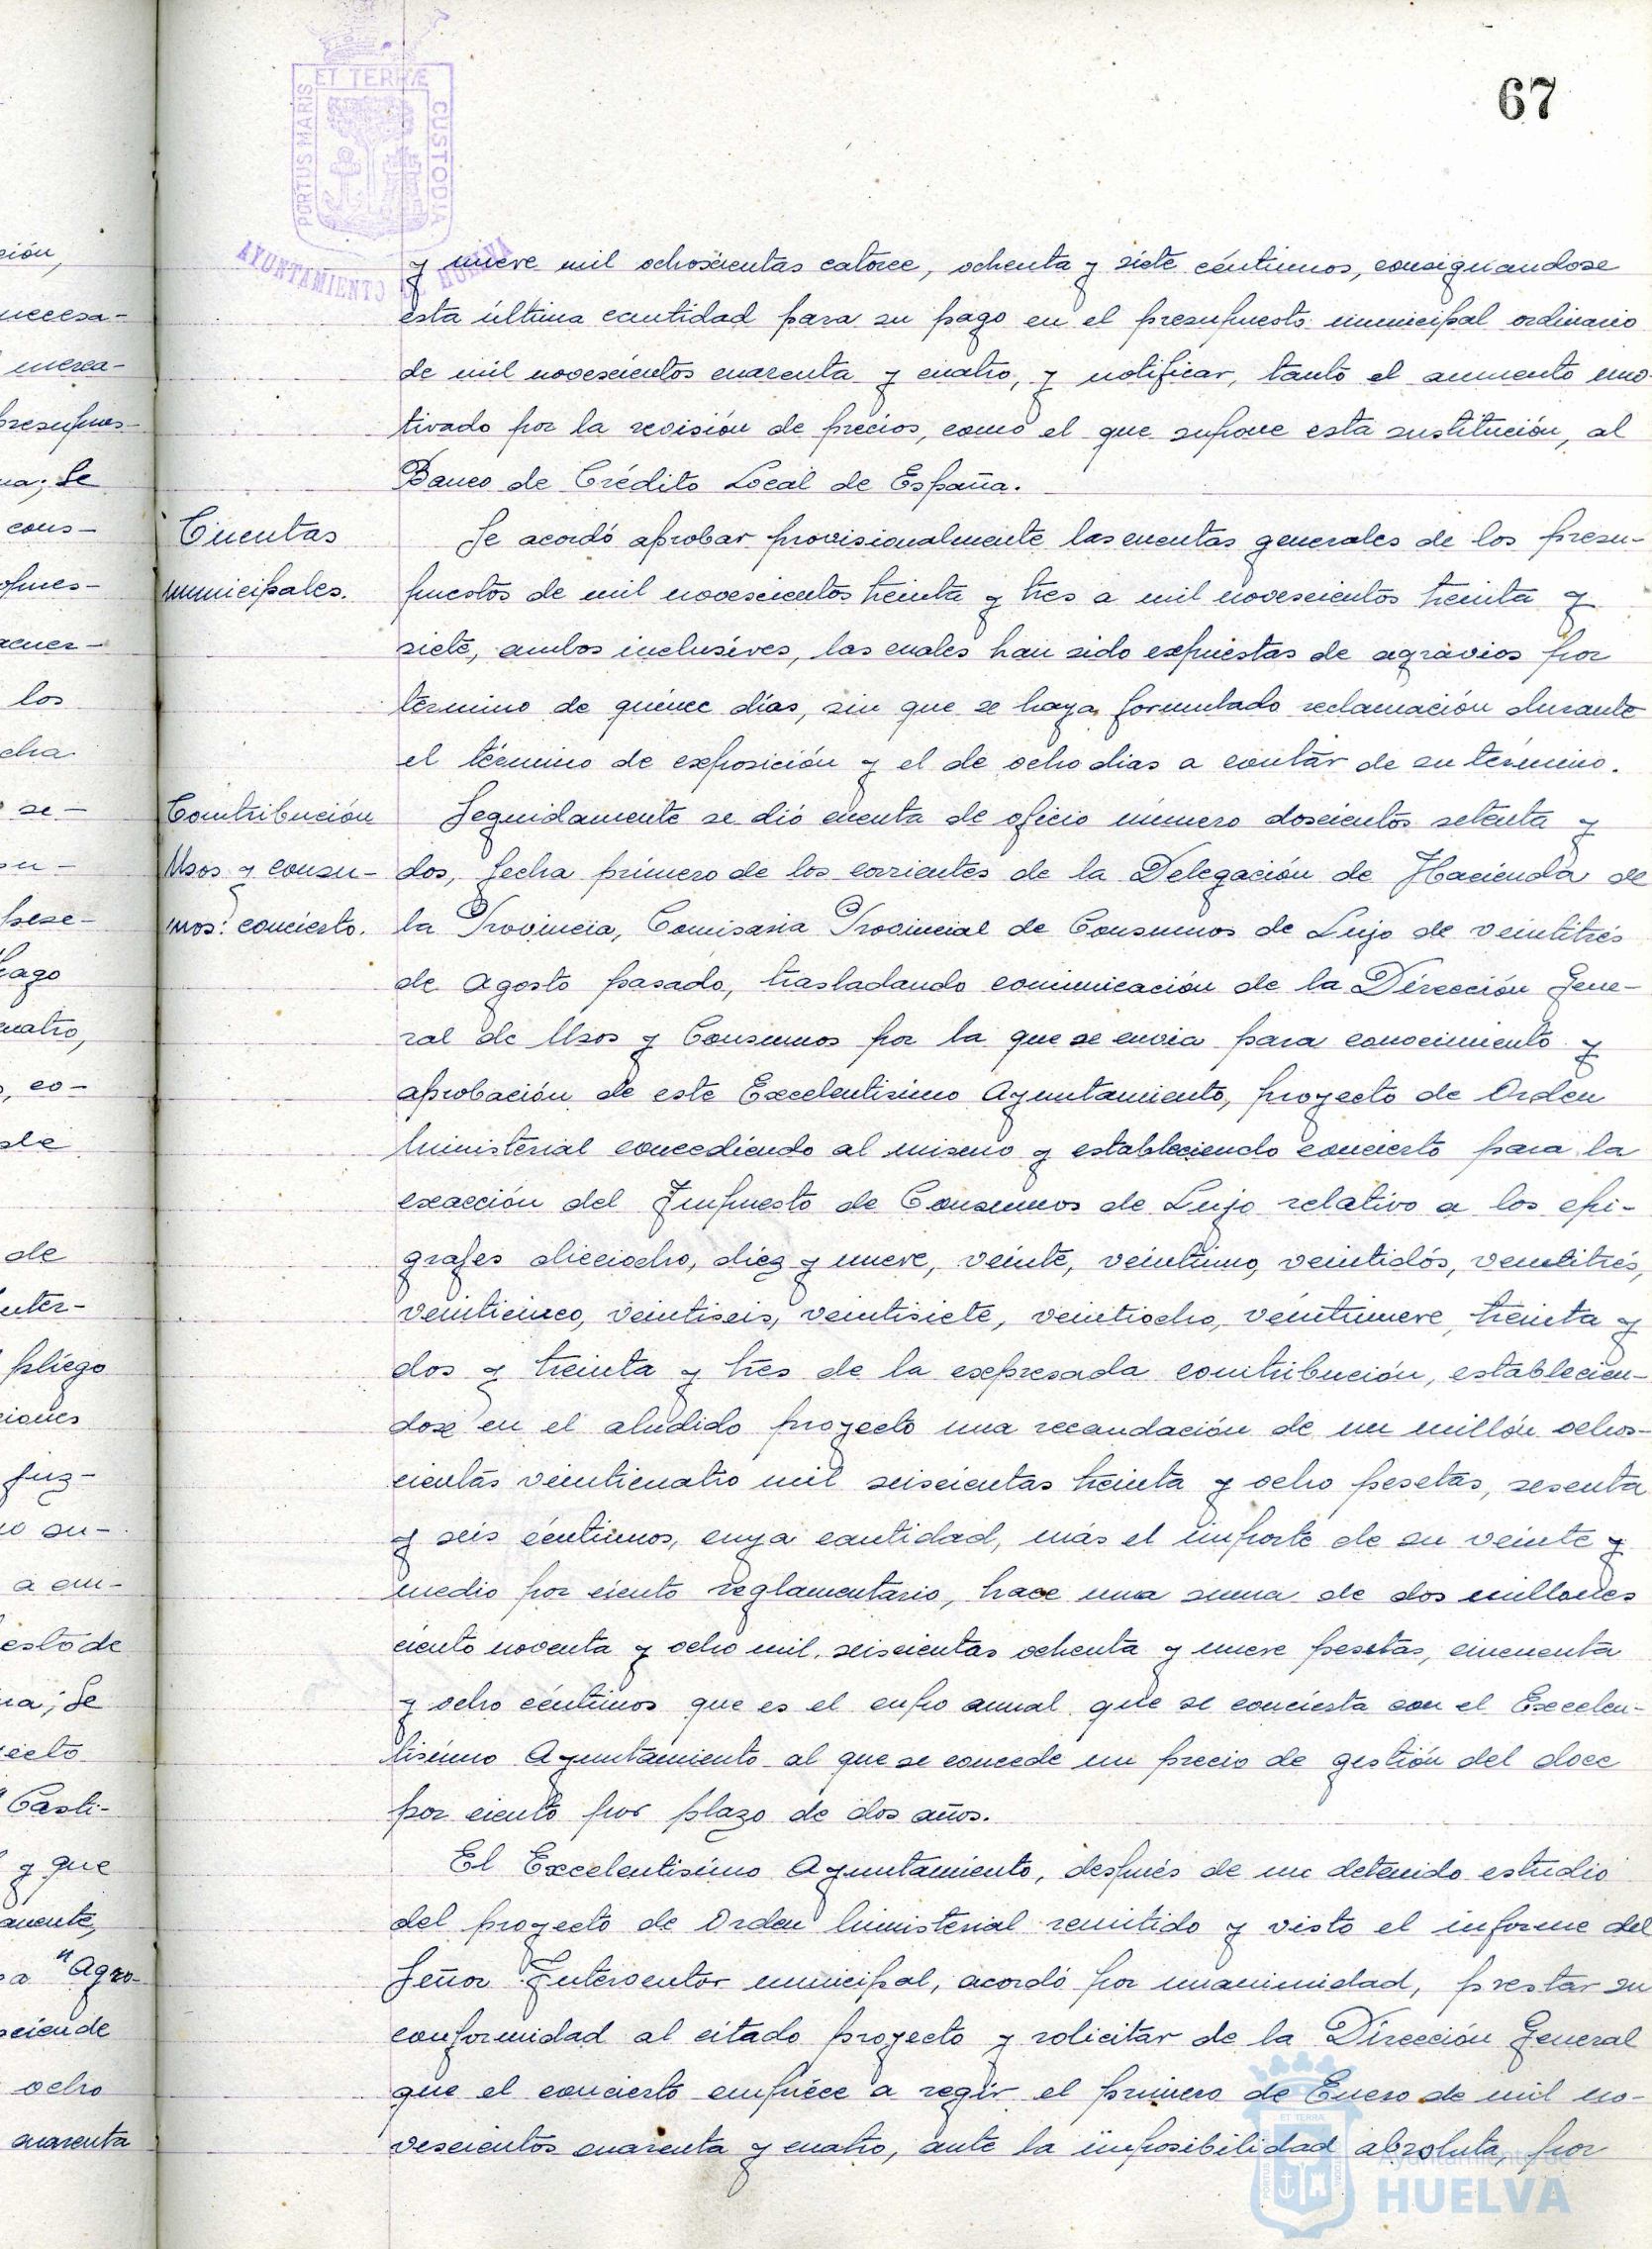 67
ET TERRÆ
PORTUS MARIS
CUSTODIA
AYUNTAMIENTO DE HUELVA
y nueve mil ochoscientas catorce, ochenta y siete céntimos, consignandose
esta última cantidad para su pago en el presupuesto municipal ordinario
de mil novescientos cuarenta y cuatro, y notificar, tanto el aumento mo-
tivado por la revisión de precios, como el que supone esta sustitución, al
Banco de Crédito Local de España.
Cuentas
municipales.
Se acordó aprobar provisionalmente las cuentas generales de los presu-
puestos de mil novescientos treinta y tres a mil novescientos treinta y
siete, ambos inclusives, las cuales han sido expuestas de agravios por
termino de quince días, sin que se haya formulado reclamación durante
el término de exposición y el de ocho dias a contar de su término.
Contribución
Usos y consu-
mos: concierto.
Seguidamente se dió cuenta de oficio número doscientos setenta y
dos, fecha primero de los corrientes de la Delegación de Hacienda de
la Provincia, Comisaria Provincial de Consumos de Lujo de veintitrés
de Agosto pasado, trasladando comunicación de la Dirección Gene-
ral de Usos y Consumos por la que se envia para conocimiento y
aprobación de este Excelentisimo Ayuntamiento, proyecto de Orden
Ministerial concediendo al mismo y estableciendo concierto para la
exacción del Impuesto de Consumos de Lujo relativo a los epi-
grafes dieciocho, diez y nueve, veinte, veintiuno, veintidós, veintitrés,
veinticinco, veintiseis, veintisiete, veintiocho, veintinueve, treinta y
dos y treinta y tres de la expresada contribución, establecien-
dose en el aludido proyecto una recaudación de un millón ochos-
cientas veinticuatro mil seiscientas treinta y ocho pesetas, sesenta
y seis céntimos, cuya cantidad, más el importe de su veinte y
medio por ciento reglamentario, hace una suma de dos millones
ciento noventa y ocho mil seiscientas ochenta y nueve pesetas, cincuenta
y ocho céntimos que es el cupo anual que se concierta con el Excelen-
tisimo Ayuntamiento al que se concede un precio de gestión del doce
por ciento por plazo de dos años.
El Excelentisimo Ayuntamiento, después de un detenido estudio
del proyecto de Orden Ministerial remitido y visto el informe del
Señor Interventor municipal, acordó por unanimidad, prestar su
conformidad al citado proyecto y solicitar de la Dirección General
que el concierto empiece a regir el primero de Enero de mil no-
vescientos cuarenta y cuatro, ante la imposibilidad absoluta, por
Ayuntamiento de
HUELVA